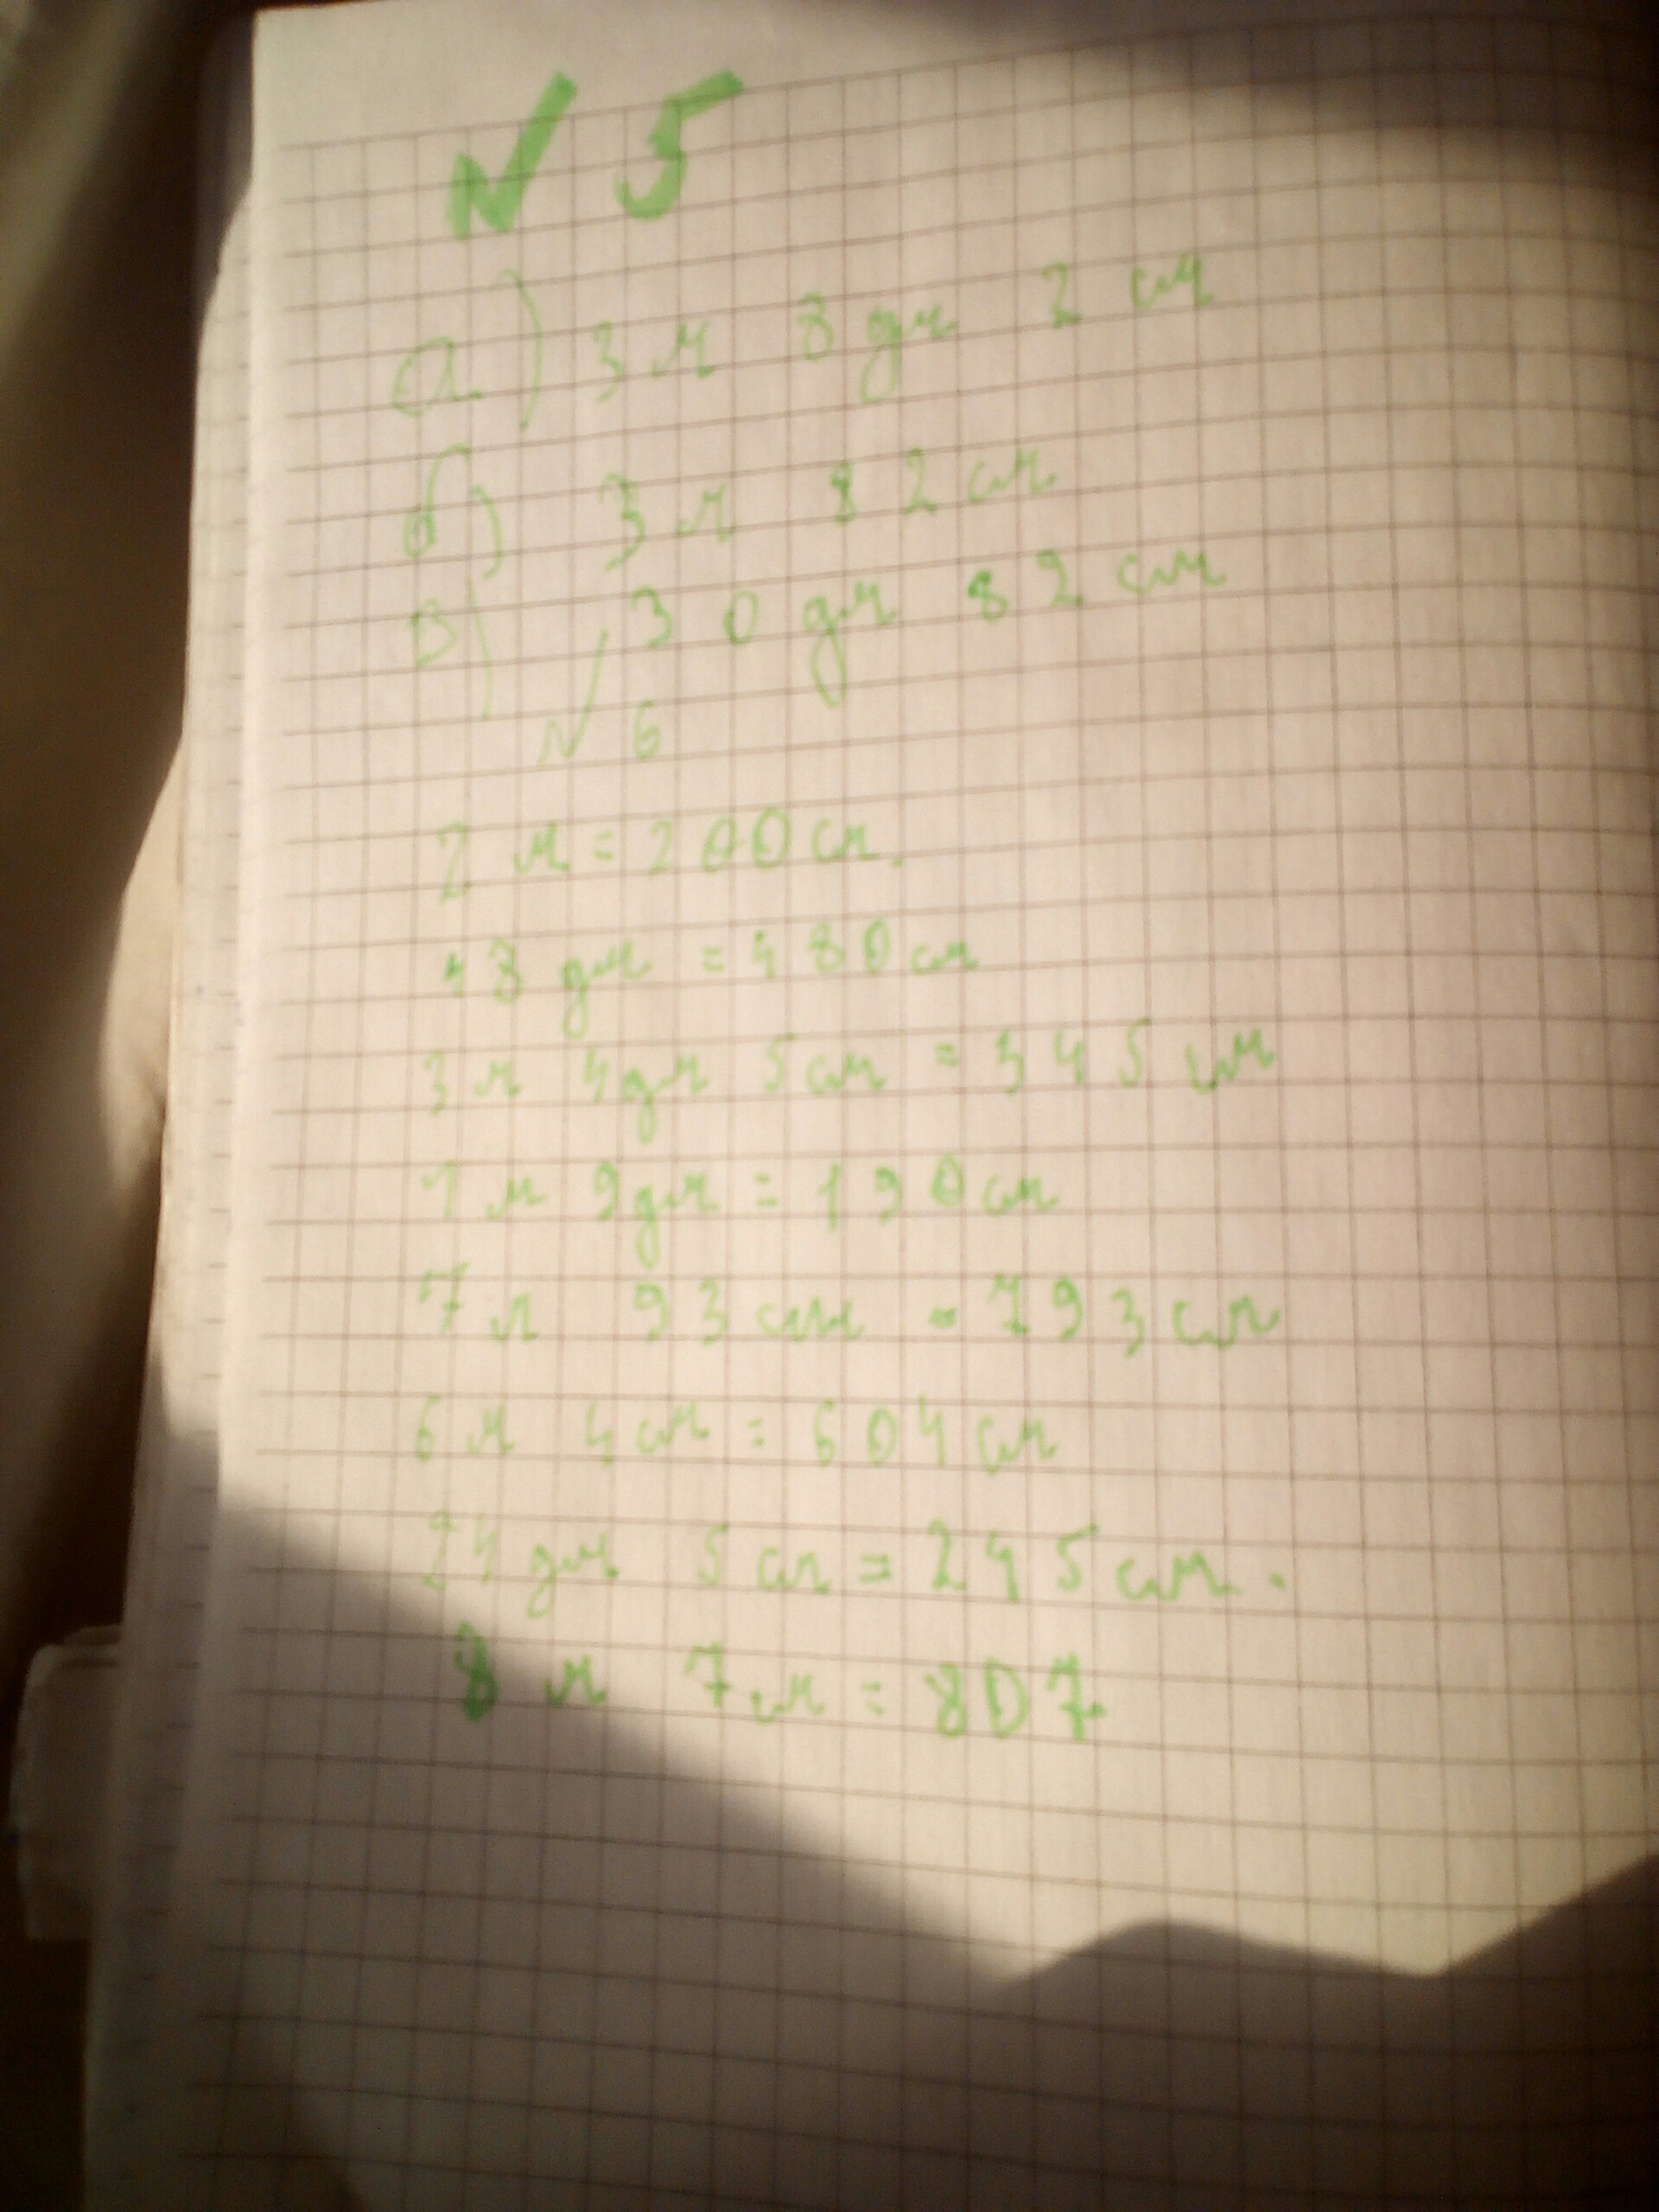 № 5
а) 3 м 8 дм 2 см
б) 3 м 82 см
в) 30 дм 82 см
№ 6
2 м = 200 см.
48 дм = 480 см
3 м 4 дм 5 см = 345 см
1 м 9 дм = 190 см
7 м 93 см = 793 см
6 м 4 см = 604 см
24 дм 5 см = 245 см.
8 м 7 см = 807.